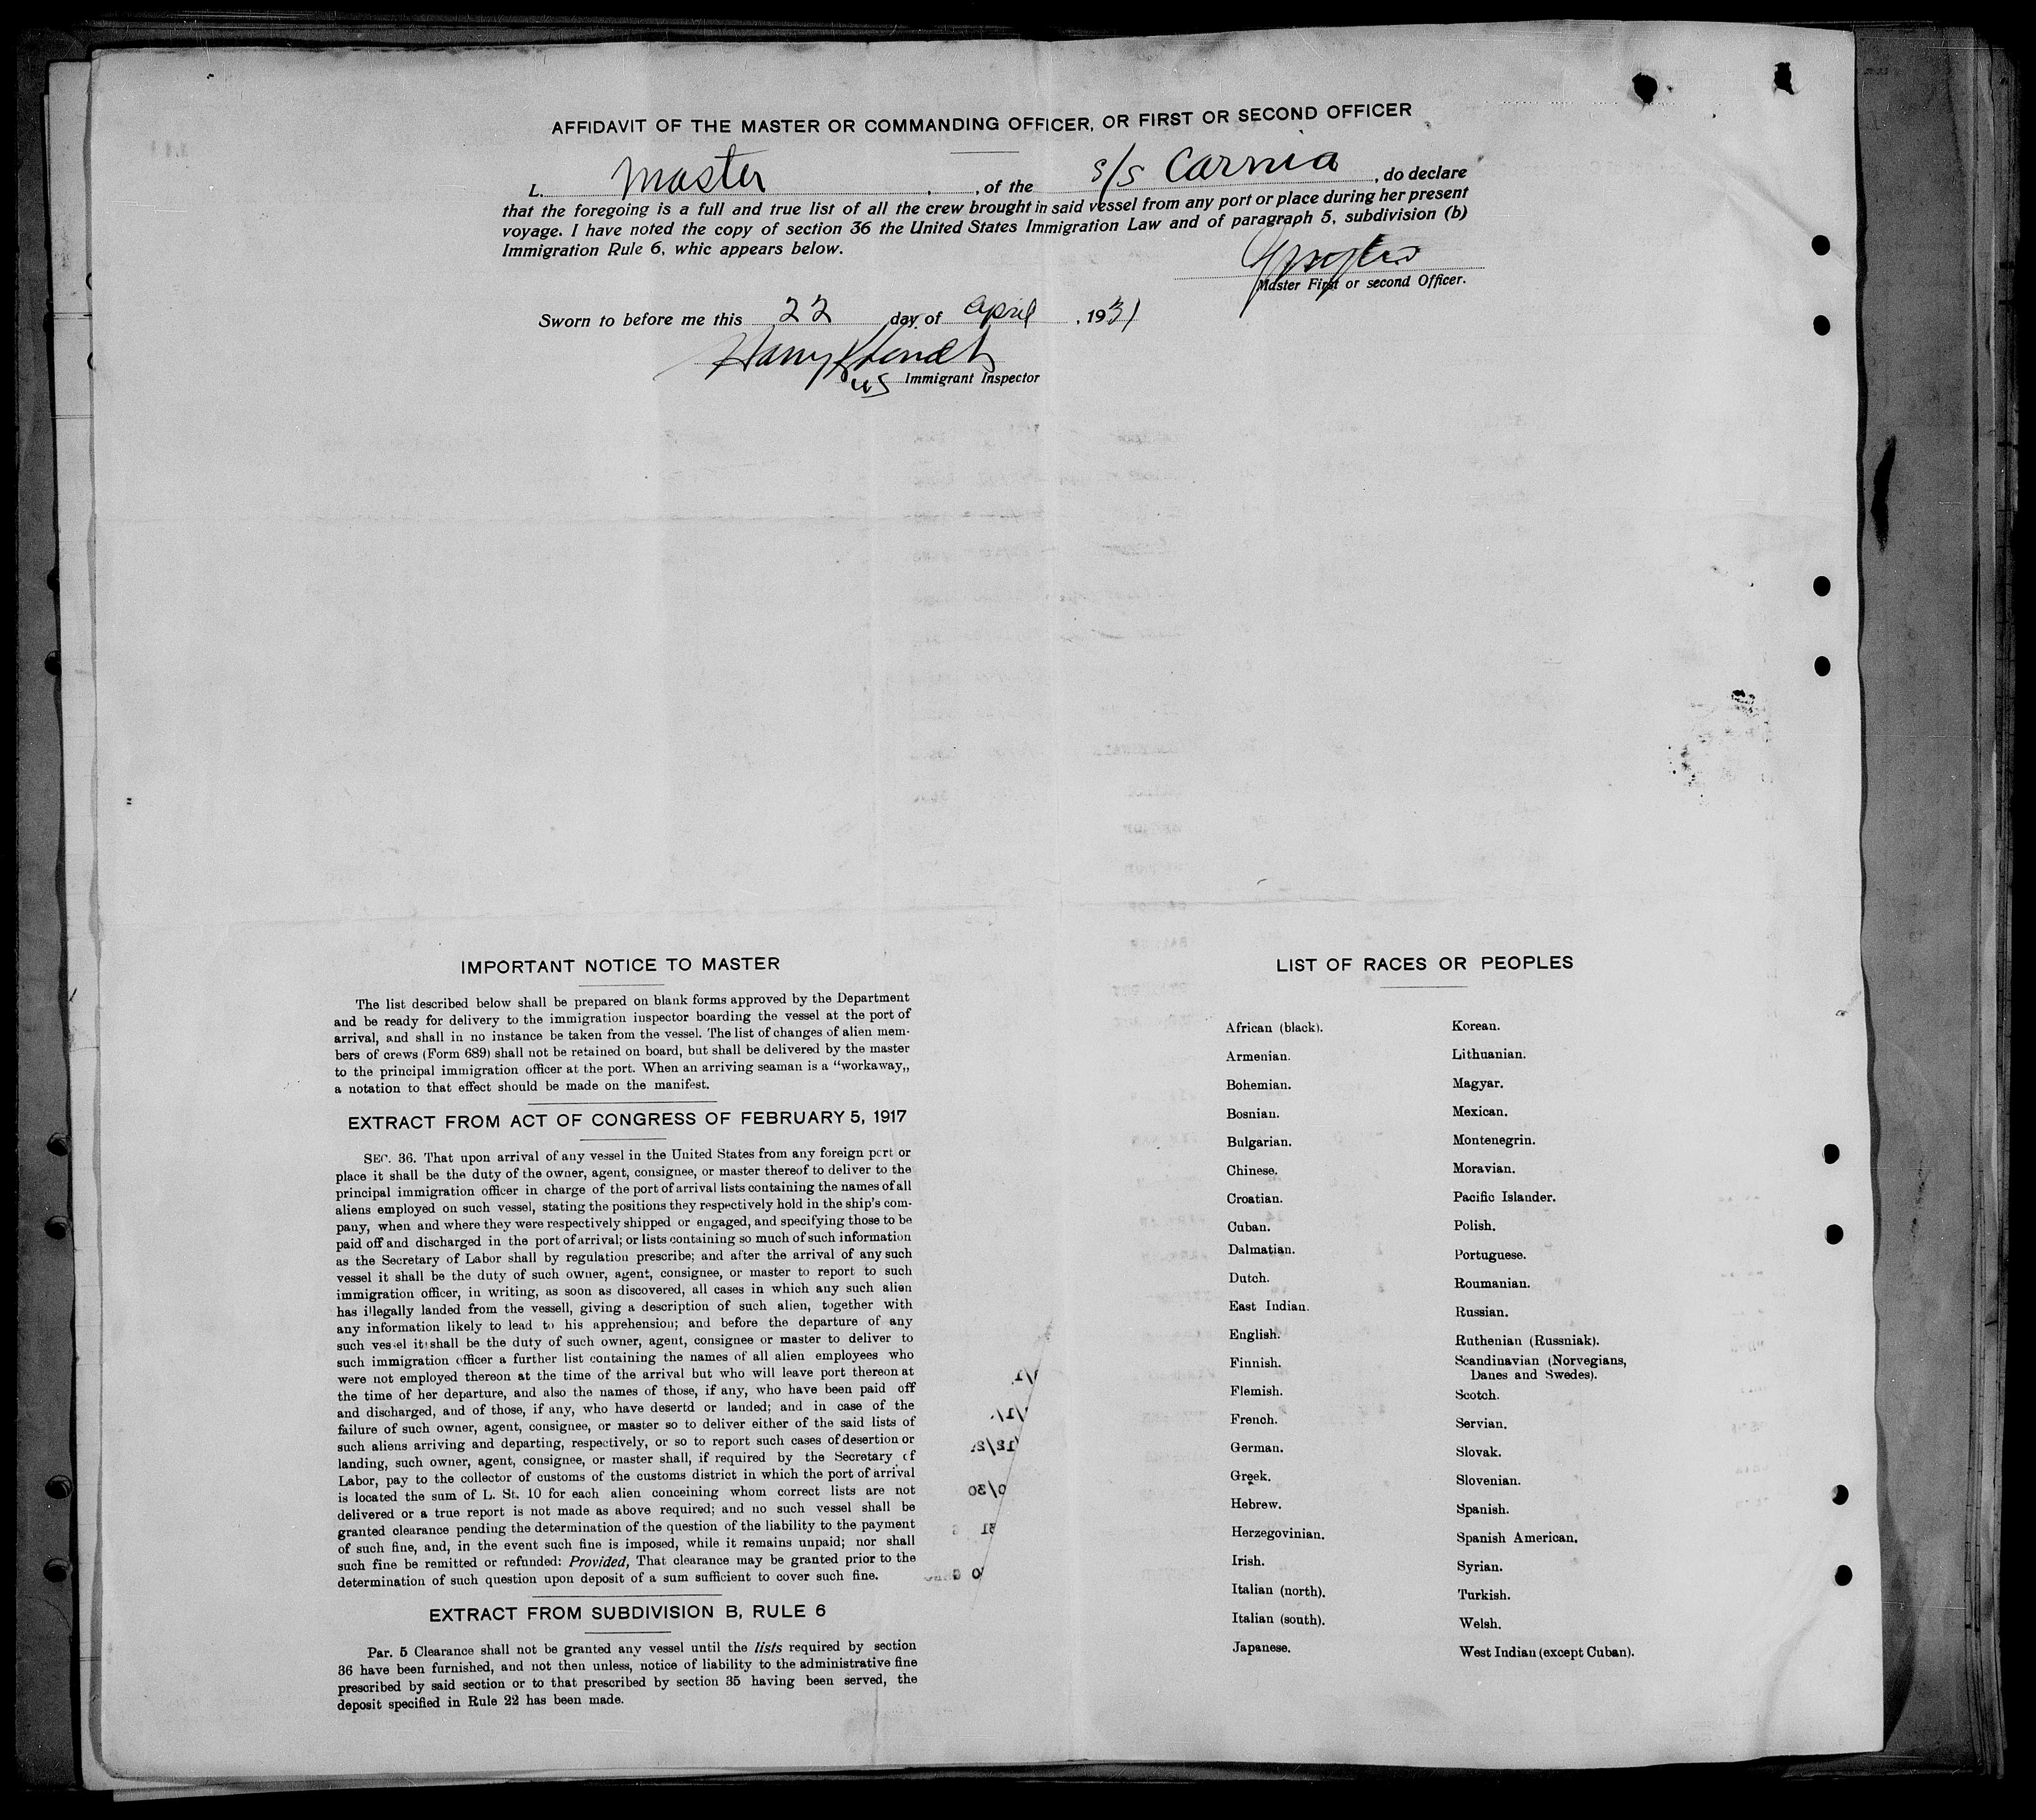 AFFIDAVIT OF THE MASTER OR COMMANDING OFFICER, OR FIRST OR SECOND OFFICER
L. Master , of the s/s Carnia , do declare
that the foregoing is a full and true list of all the crew brought in said vessel from any port or place during her present
voyage. I have noted the copy of section 36 the United States Immigration Law and of paragraph 5, subdivision (b)
Immigration Rule 6, whic appears below.
Master First or second Officer.
Sworn to before me this 22 day of April , 1931
Harry
US Immigrant Inspector
IMPORTANT NOTICE TO MASTER
The list described below shall be prepared on blank forms approved by the Department
and be ready for delivery to the immigration inspector boarding the vessel at the port of
arrival, and shall in no instance be taken from the vessel. The list of changes of alien mem-
bers of crews (Form 689) shall not be retained on board, but shall be delivered by the master
to the principal immigration officer at the port. When an arriving seaman is a “workaway,,
a notation to that effect should be made on the manifest.
EXTRACT FROM ACT OF CONGRESS OF FEBRUARY 5, 1917
SEC. 36. That upon arrival of any vessel in the United States from any foreign port or
place it shall be the duty of the owner, agent, consignee, or master thereof to deliver to the
principal immigration officer in charge of the port of arrival lists containing the names of all
aliens employed on such vessel, stating the positions they respectively hold in the ship's com-
pany, when and where they were respectively shipped or engaged, and specifying those to be
paid off and discharged in the port of arrival; or lists containing so much of such information
as the Secretary of Labor shall by regulation prescribe; and after the arrival of any such
vessel it shall be the duty of such owner, agent, consignee, or master to report to such
immigration officer, in writing, as soon as discovered, all cases in which any such alien
has illegally landed from the vessell, giving a description of such alien, together with
any information likely to lead to his apprehension; and before the departure of any
such vessel it shall be the duty of such owner, agent, consignee or master to deliver to
such immigration officer a further list containing the names of all alien employees who
were not employed thereon at the time of the arrival but who will leave port thereon at
the time of her departure, and also the names of those, if any, who have been paid off
and discharged, and of those, if any, who have desertd or landed; and in case of the
failure of such owner, agent, consignee, or master so to deliver either of the said lists of
such aliens arriving and departing, respectively, or so to report such cases of desertion or
landing, such owner, agent, consignee, or master shall, if required by the Secretary of
Labor, pay to the collector of customs of the customs district in which the port of arrival
is located the sum of L. St. 10 for each alien conceining whom correct lists are not
delivered or a true report is not made as above required; and no such vessel shall be
granted clearance pending the determination of the question of the liability to the payment
of such fine, and, in the event such fine is imposed, while it remains unpaid; nor shall
such fine be remitted or refunded: Provided, That clearance may be granted prior to the
determination of such question upon deposit of a sum sufficient to cover such fine.
EXTRACT FROM SUBDIVISION B, RULE 6
Par. 5 Clearance shall not be granted any vessel until the lists required by section
36 have been furnished, and not then unless, notice of liability to the administrative fine
prescribed by said section or to that prescribed by section 35 having been served, the
deposit specified in Rule 22 has been made.
LIST OF RACES OR PEOPLES
African (black).
Armenian.
Bohemian.
Bosnian.
Bulgarian.
Chinese.
Croatian.
Cuban.
Dalmatian.
Dutch.
East Indian.
English.
Finnish.
Flemish.
French.
German.
Greek.
Hebrew.
Herzegovinian.
Irish.
Italian (north).
Italian (south).
Japanese.
Korean.
Lithuanian.
Magyar.
Mexican.
Montenegrin.
Moravian.
Pacific Islander.
Polish.
Portuguese.
Roumanian.
Russian.
Ruthenian (Russniak).
Scandinavian (Norvegians,
Danes and Swedes).
Scotch.
Servian.
Slovak.
Slovenian.
Spanish.
Spanish American.
Syrian.
Turkish.
Welsh.
West Indian (except Cuban).